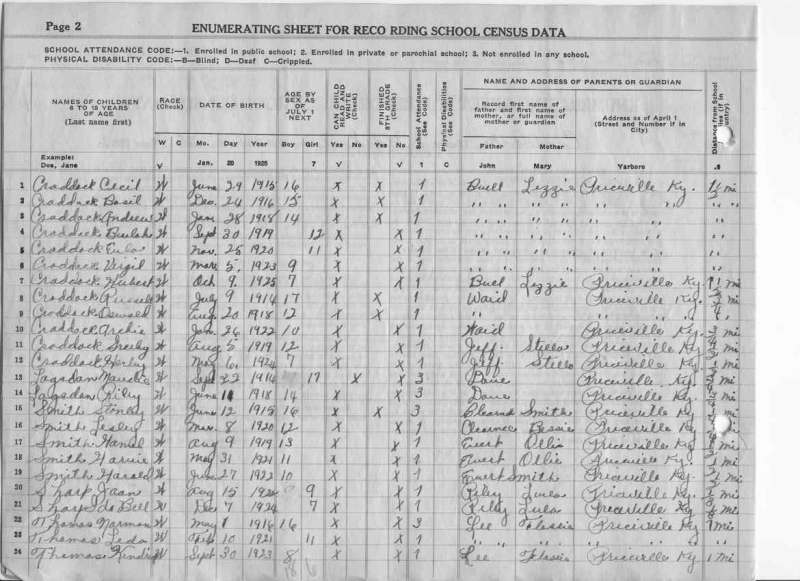 Page 2
ENUMERATING SHEET FOR RECO RDING SCHOOL CENSUS DATA
SCHOOL ATTENDANCE CODE:—1. Enrolled in public school; 2. Enrolled in private or parochial school; 3. Not enrolled in any school.
PHYSICAL DISABILITY CODE:—B—Blind; D—Deaf C—Crippled.
NAMES OF CHILDREN 6 TO 18 YEARS OF AGE (Last name first) RACE (Check) DATE OF BIRTH AGE BY SEX AS OF JULY 1 NEXT CAN CHILD READ AND WRITE (Check) FINISHED 8TH GRADE (Check) School Attendance (See Code) Physical Disabilities (See Code) NAME AND ADDRESS OF PARENTS OR GUARDIAN
Record first name of father and first name of mother, or full name of mother or guardian Address as of April 1 (Street and Number if in City) Distance from School
W C Mo. Day Year Boy Girl Yes No Yes No 1 C Father Mother
Example: Doe, Jane V Jan. 20 1925 7 V V 1 John Mary Yarboro .5
1 Craddock Cecil W June 29 1915 16 X X 1 Buell Lizzie Priceville Ky. mi
2 Craddock Basil W Dec. 24 1916 15 X X 1 " " " " "
3 Craddock Andrew W Jan 28 1918 14 X X 1 " " " " "
4 Craddock Beulah W Sept 30 1919 12 X X 1 " " " " "
5 Craddock W Nov. 25 1920 11 X X 1 " " " " "
6 Craddock Virgil W Mar. 5, 1923 9 X X 1 " " " " "
7 Craddock Hubert W Oct 9, 1925 7 X X 1 Buel Lizzie Priceville Ky. mi
8 Craddock Russell W July 9 1914 17 X X 1 Waid Priceville Ky. mi
9 Craddock Oswald W Aug 20 1918 12 X X 1 " " "
10 Craddock Archie W Jan. 26 1922 10 X X 1 Waid Priceville Ky mi
11 Craddock W Aug 5 1919 12 X X 1 Jeff. Stella Priceville Ky mi
12 Craddock W May 6, 1924 7 X X 1 Jeff Stella Priceville Ky mi
13 Logsdon W Sept 22 1914 17 X X 3 Dave Priceville Ky mi
14 Logsdon Riley W June 1918 14 X X 3 Dave Priceville Ky mi
15 Smith Stanley W June 12 1915 16 X X 3 Smith Priceville Ky mi
16 Smith Lesley W Mar. 8 1920 12 X X 1 Clearnce Bessie Priceville Ky mi
17 Smith W Aug 9 1919 13 X X 1 Ewert Ollie Priceville Ky 1 mi
18 Smith Harvie W May 31 1921 11 X X 1 Ewert Ollie Priceville Ky 1 mi
19 Smith Harold W June 27 1922 10 X X 1 Ewert Smith Priceville Ky mi
20 Sharp W Aug 15 9 X X 1 Riley Lula Priceville Ky. mi
21 Sharp Ida Bell W Dec 7 1924 7 X X 1 Riley Lula Priceville Ky mi
22 Thomas Norman W May 1 1916 16 X X 3 Lee Priceville Ky 1 mi
23 Thomas Leda W 10 1921 11 X X 1 " " " " "
24 Thomas W Sept 30 1923 8 X X 1 Lee Priceville Ky 1 mi